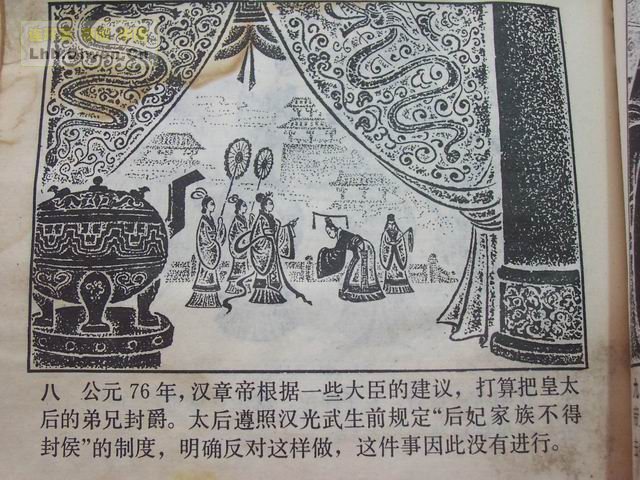 八 公元76年，汉章帝根据一些大臣的建议，打算把皇太
后的弟兄封爵。太后遵照汉光武生前规定“后妃家族不得
封侯”的制度，明确反对这样做，这件事因此没有进行。